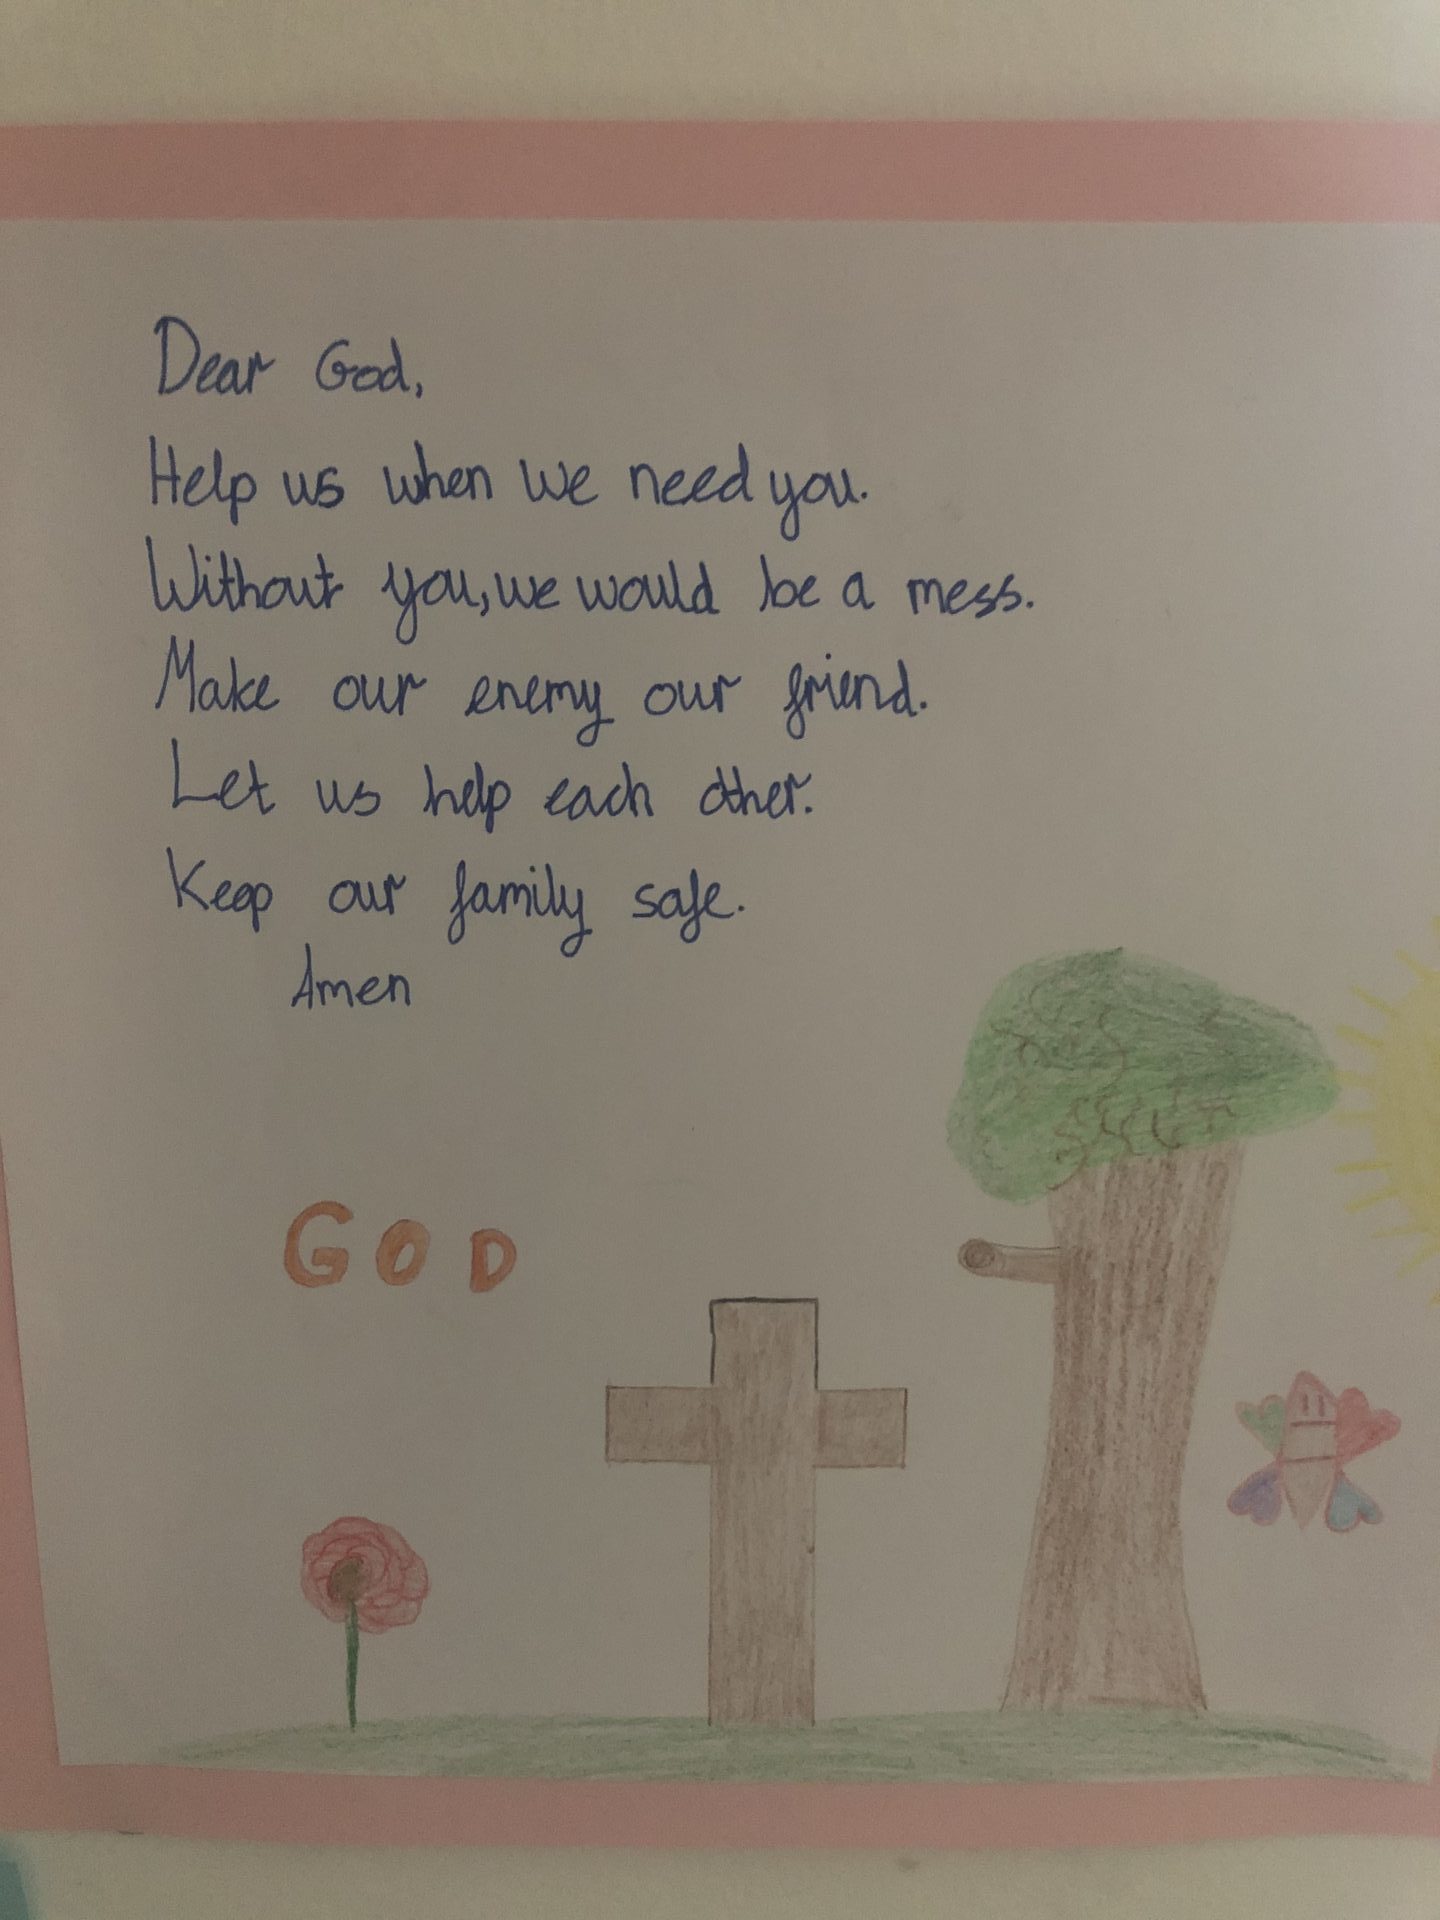 Dear God,
Help us when we need you.
Without you, we would be a mess.
Make our enemy our friend.
Let us help each other.
Keep our family safe.
Amen
GOD